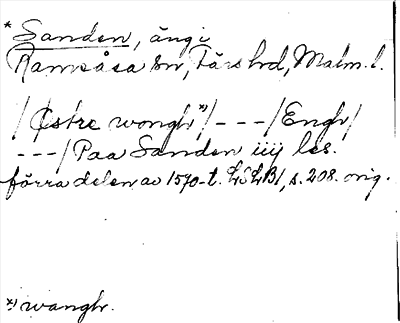 * Sanden, äng i
Ramsåsa sn, Färs hd, Malm. l.
/Østre wongh*)/ - - - /Engh/
- - - /Paa Sanden iiij les.
förra delen av 1570-t. LSLB1, s. 208. orig.
*) wangh.